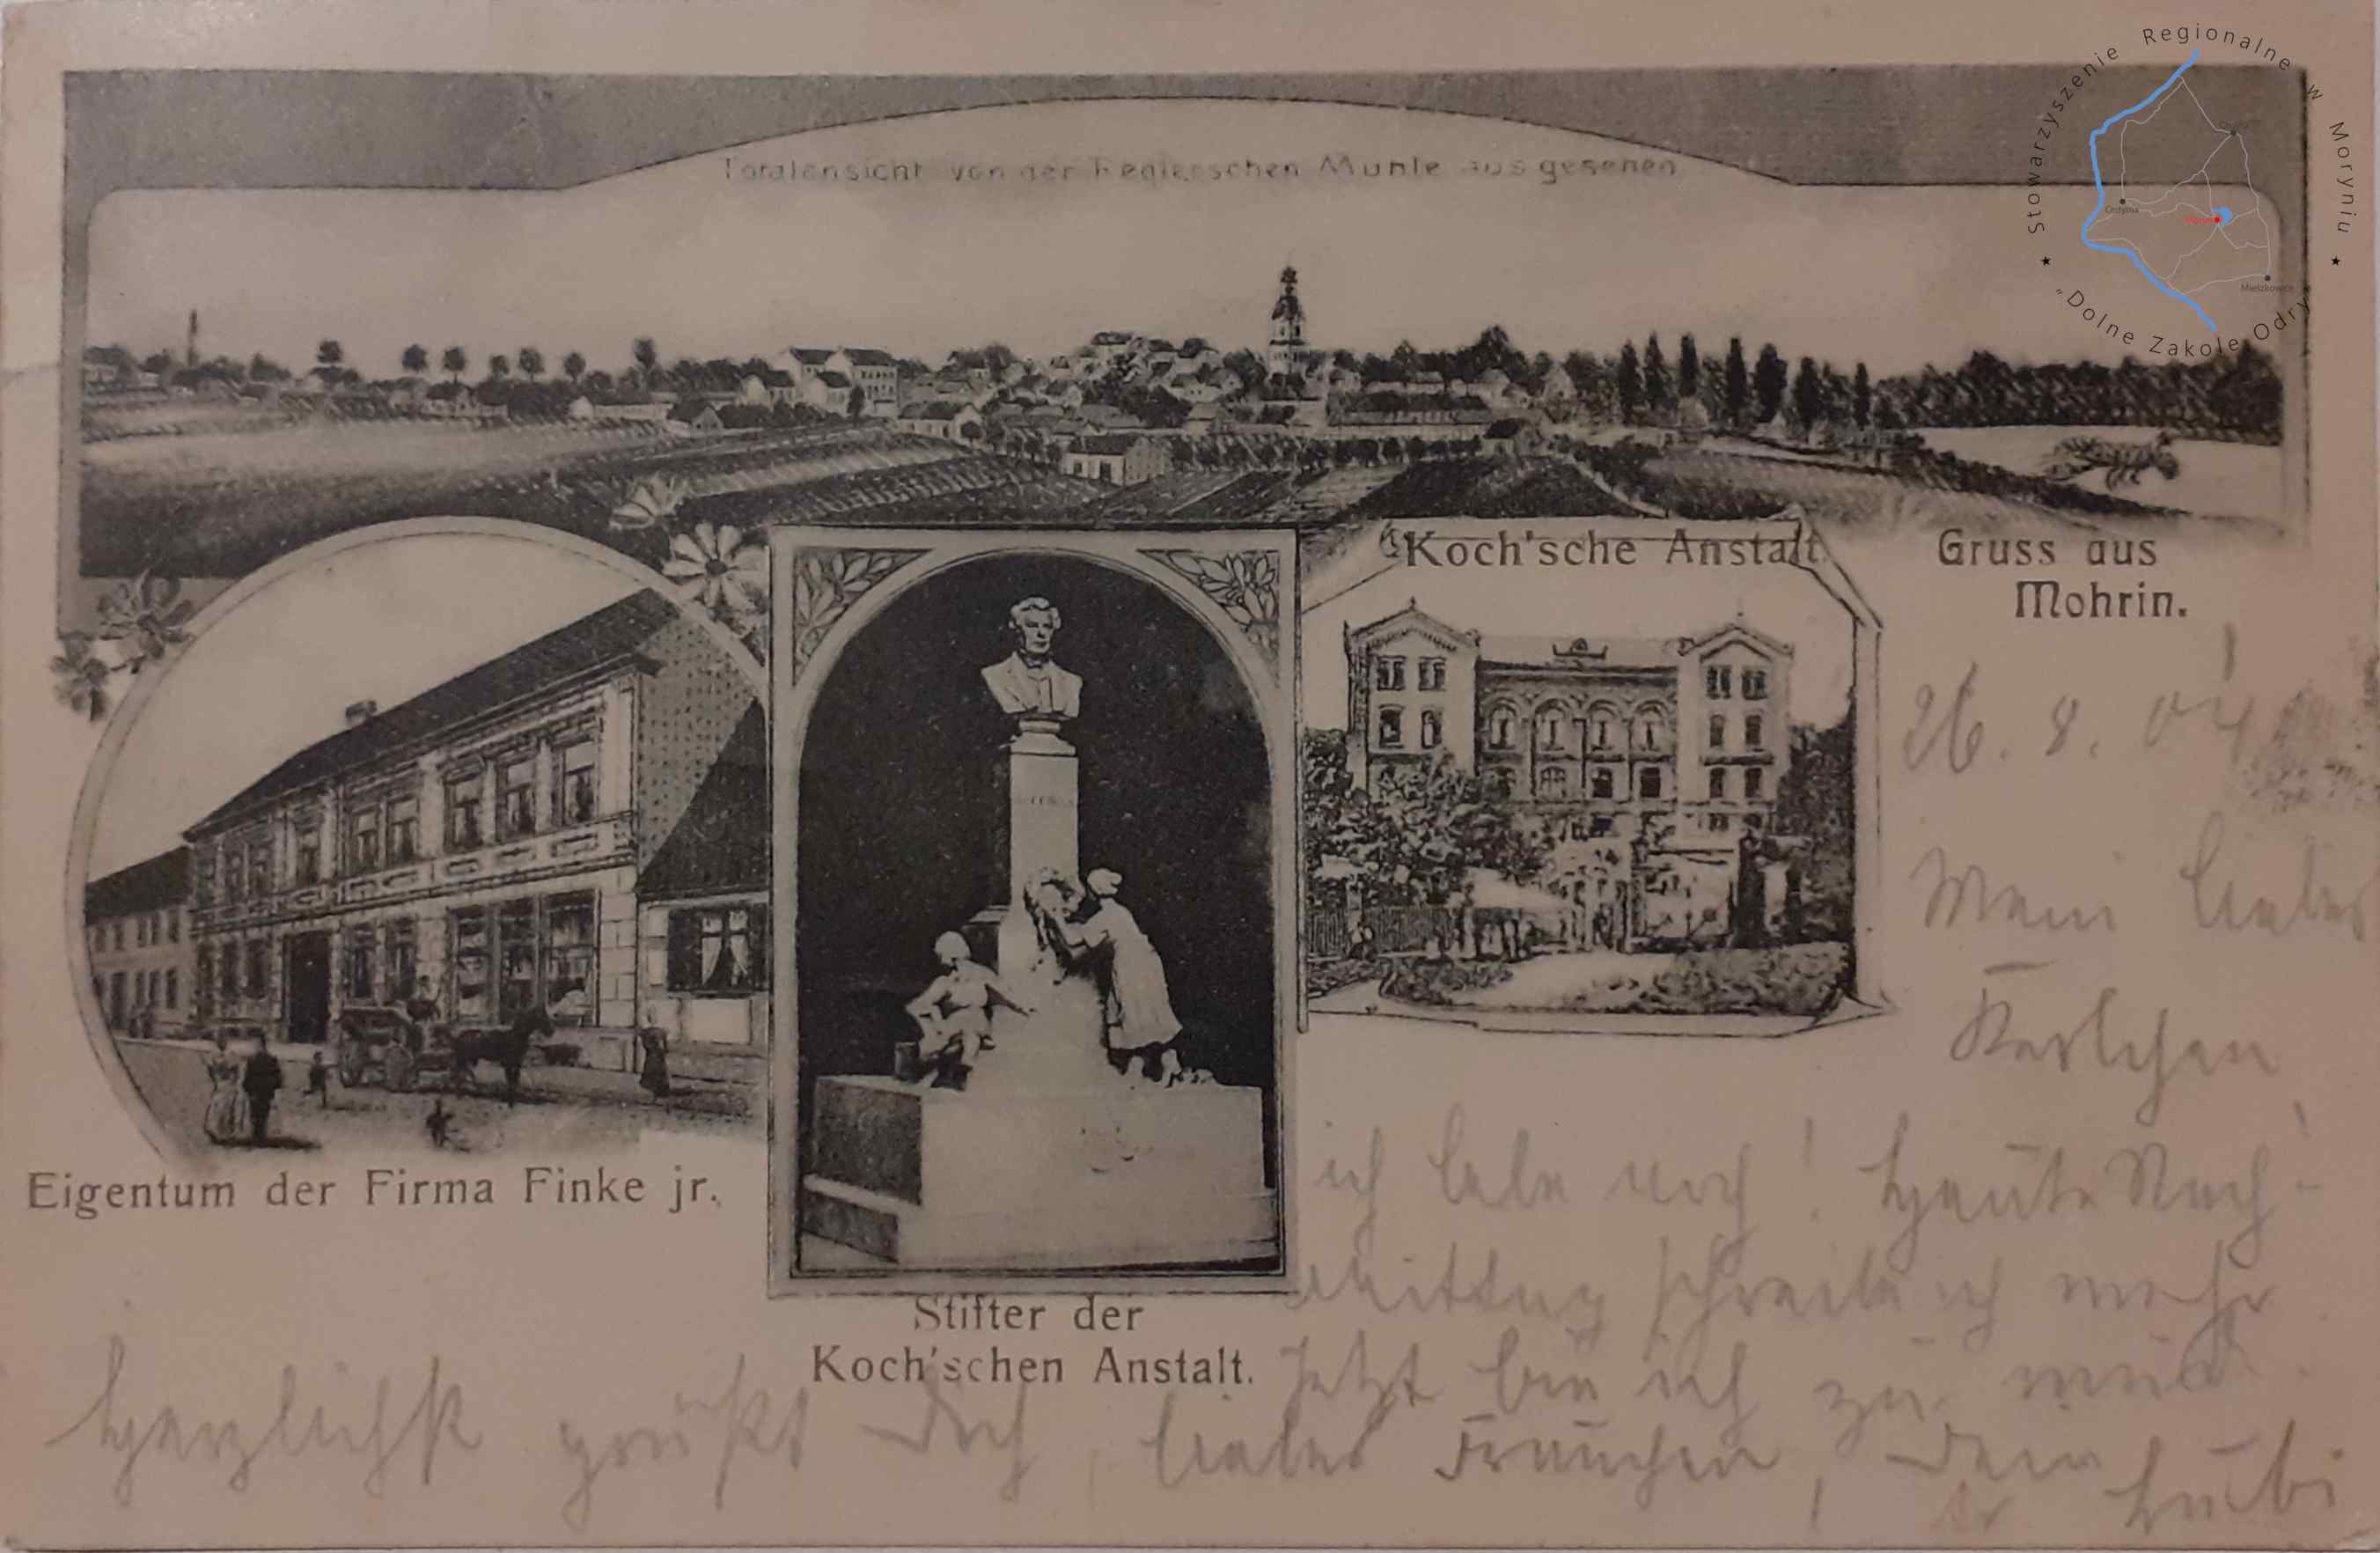 Stowarzyszenie Regionalne w Moryniu
"Dolne Zakole Odry"
Cedynia
Moryń
Mieszkowice
Totalansicht von der Reglerschen Mühle aus gesehen
Koch'sche Anstalt.
Gruss aus
Mohrin.
26. 8. 04
Mein liebes
ich lebe noch! Heute Nach-
mittag schreibe ich mehr
Jetzt bin ich zu müde.
Eigentum der Firma Finke jr.
Stifter der
Koch'schen Anstalt.
Herzlichst grüßt Dich, liebes Frauchen, Dein